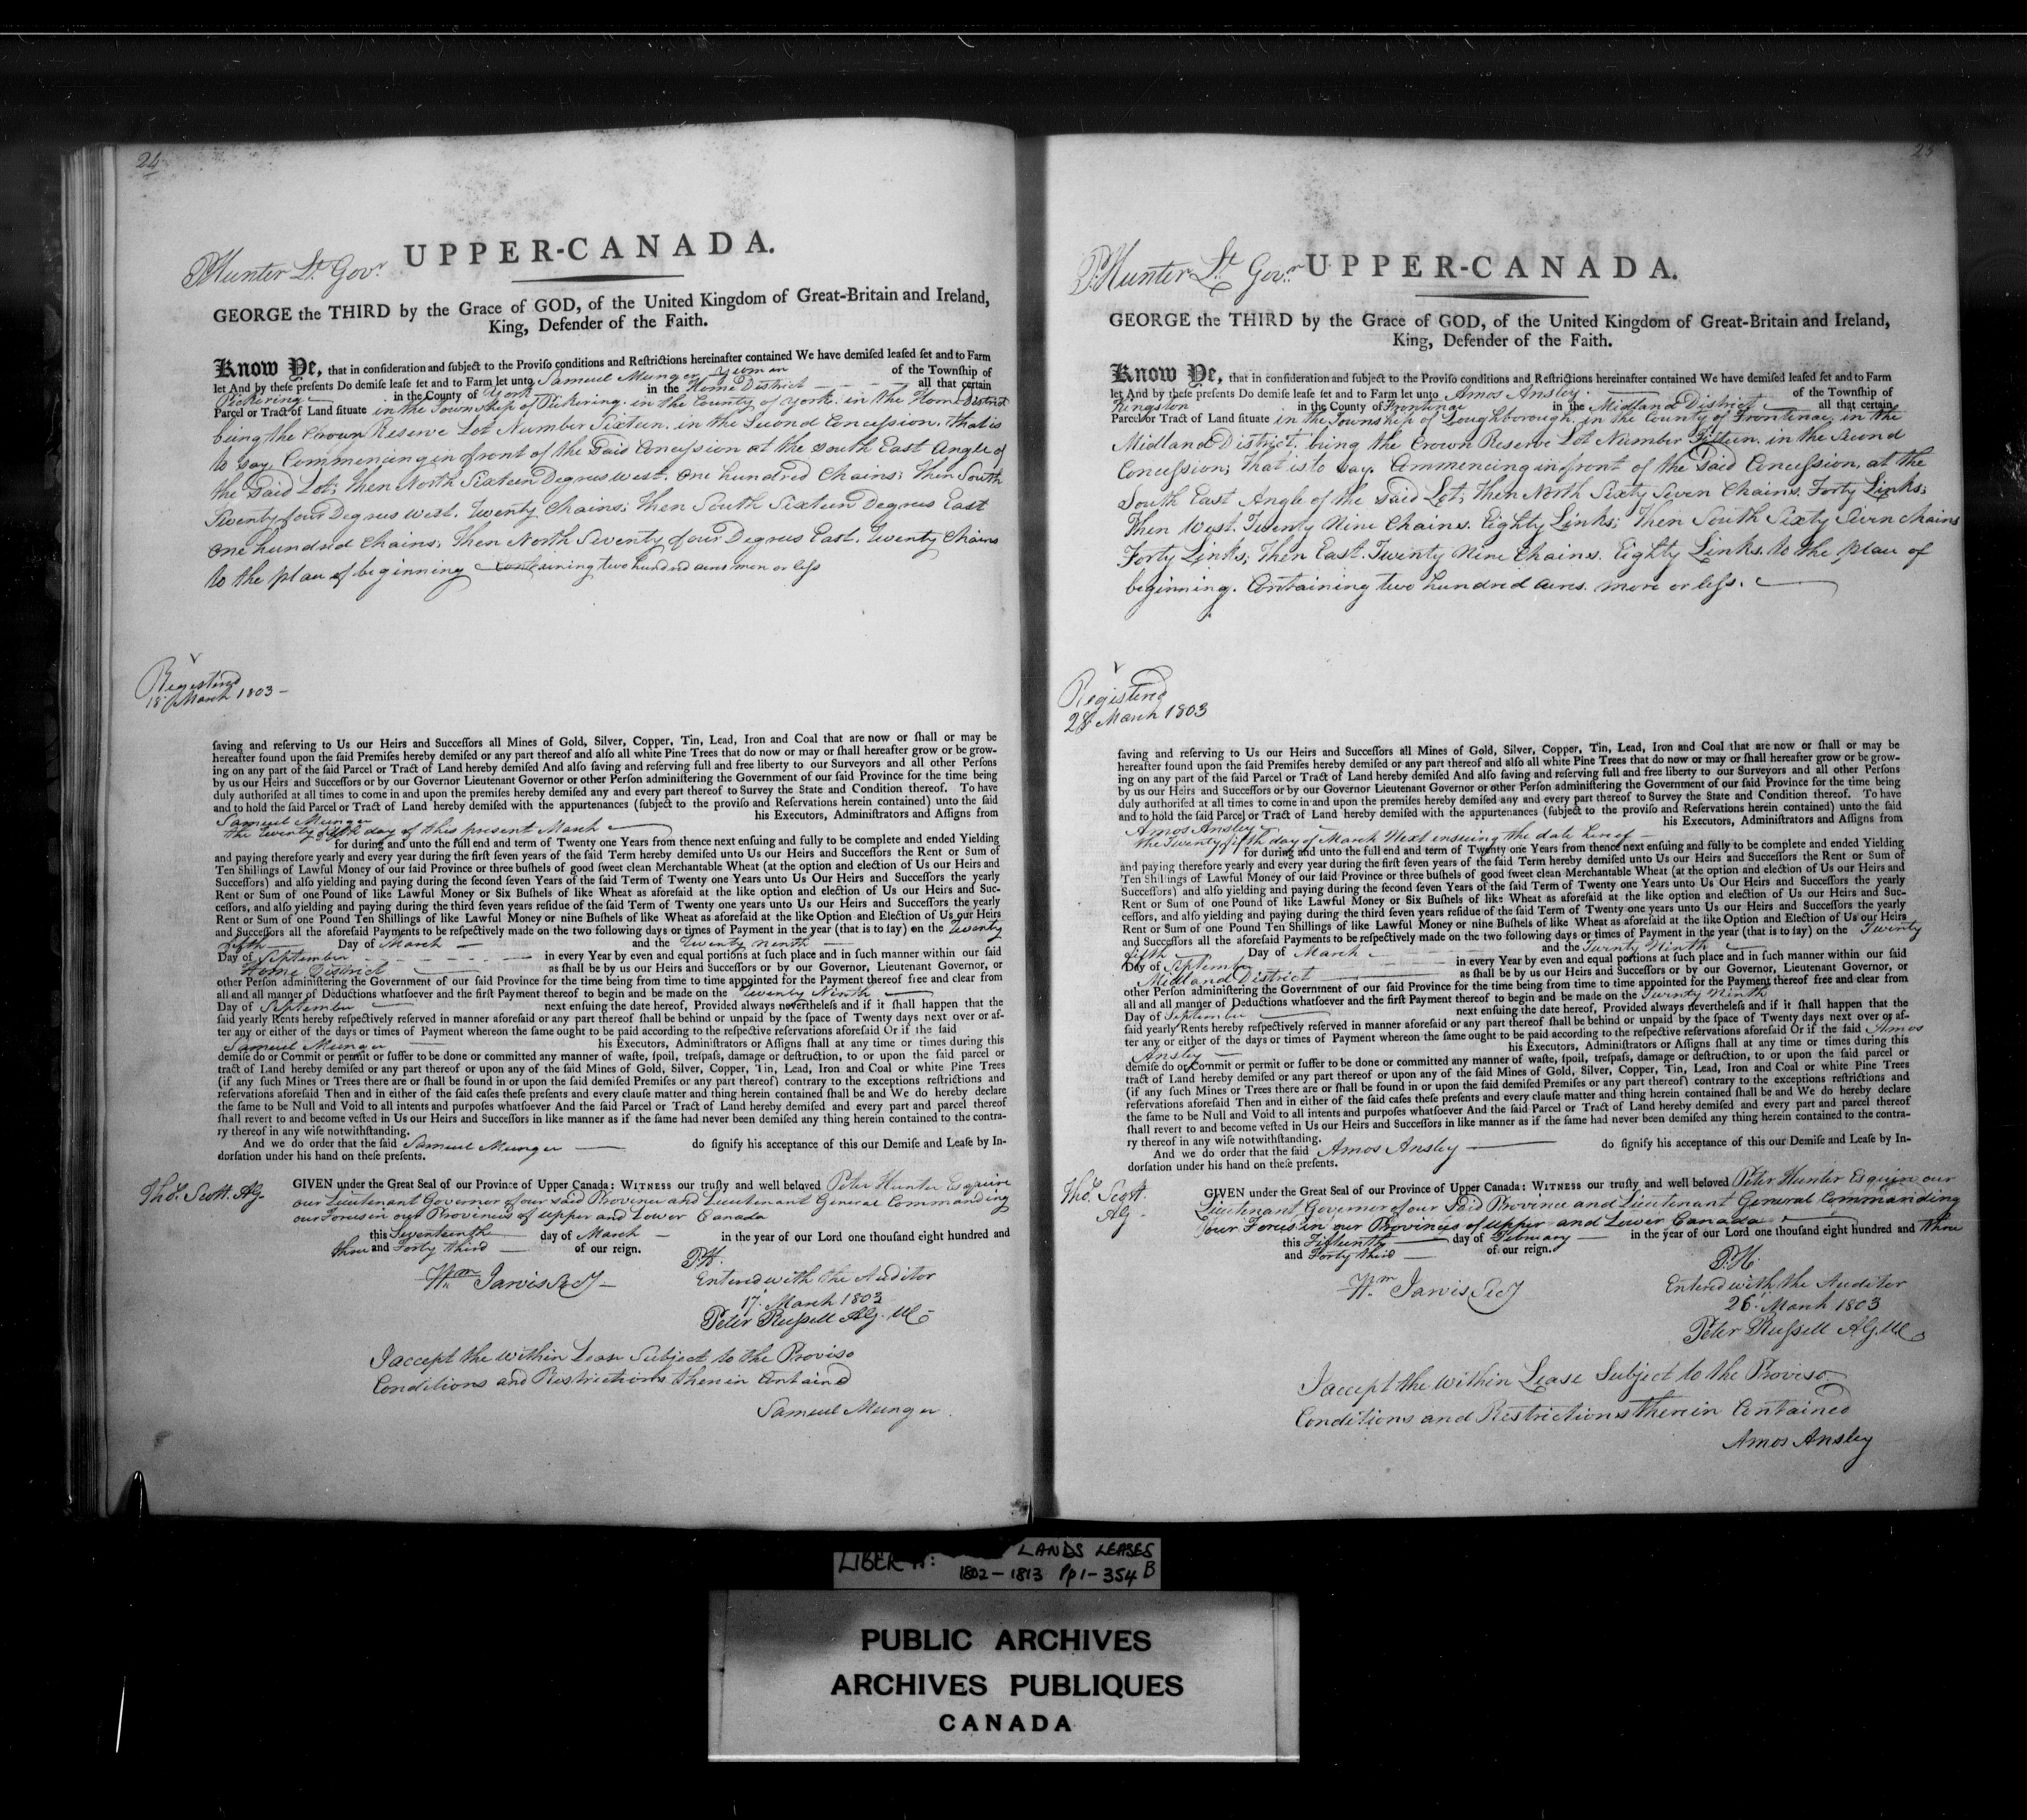 24
UPPER-CANADA.
P Hunter Lt. Govr.
GEORGE the THIRD by the Grace of GOD, of the United Kingdom of Great-Britain and Ireland,
King, Defender of the Faith.
Know Ye, that in consideration and subject to the Proviso conditions and Restrictions hereinafter contained We have demised leased set and to Farm
let And by these presents Do demise lease set and to Farm let unto Samuel Munger Yeoman of the Township of
Pickering in the County of York in the Home District all that certain
Parcel or Tract of Land situate in the Township of Pickering. in the County of York. in the Home District
being the Crown Reserve Lot Number Sixteen. in the Second Concession. that is
to say, Commencing in front of the said Concession at the South East Angle of
the said Lot; then North Sixteen Degrees west. One hundred Chains; Then South
Seventy four Degrees west. Twenty Chains; Then South Sixteen Degrees East
One hundred Chains; Then North Seventy four Degrees East. Twenty Chains
to the place of beginning Containing two hundred acres more or less
Registered
18 March 1803
saving and reserving to Us our Heirs and Successors all Mines of Gold, Silver, Copper, Tin, Lead, Iron and Coal that are now or shall or may be
hereafter found upon the said Premises hereby demised or any part thereof and also all white Pine Trees that do now or may or shall hereafter grow or be grow-
ing on any part of the said Parcel or Tract of Land hereby demised And also saving and reserving full and free liberty to our Surveyors and all other Persons
by us our Heirs and Successors or by our Governor Lieutenant Governor or other Person administering the Government of our said Province for the time being
duly authorised at all times to come in and upon the premises hereby demised any and every part thereof to Survey the State and Condition thereof. To have
and to hold the said Parcel or Tract of Land hereby demised with the appurtenances (subject to the proviso and Reservations herein contained) unto the said
Samuel Munger his Executors, Administrators and Assigns from
the Twenty fifth day of this present March
for during and unto the full end and term of Twenty one Years from thence next ensuing and fully to be complete and ended Yielding
and paying therefore yearly and every year during the first seven years of the said Term hereby demised unto Us our Heirs and Successors the Rent or Sum of
Ten Shillings of Lawful Money of our said Province or three bushels of good sweet clean Merchantable Wheat (at the option and election of Us our Heirs and
Successors) and also yielding and paying during the second seven Years of the said Term of Twenty one Years unto Us Our Heirs and Successors the yearly
Rent or Sum of one Pound of like Lawful Money or Six Bushels of like Wheat as aforesaid at the like option and election of Us our Heirs and Suc-
cessors, and also yielding and paying during the third seven years residue of the said Term of Twenty one years unto Us our Heirs and Successors the yearly
Rent or Sum of one Pound Ten Shillings of like Lawful Money or nine Bushels of like Wheat as aforesaid at the like Option and Election of Us our Heirs
and Successors all the aforesaid Payments to be respectively made on the two following days or times of Payment in the year (that is to say) on the Twenty
fifth Day of March and the Twenty ninth
Day of September in every Year by even and equal portions at such place and in such manner within our said
Home District as shall be by us our Heirs and Successors or by our Governor, Lieutenant Governor, or
other Person administering the Government of our said Province for the time being from time to time appointed for the Payment thereof free and clear from
all and all manner of Deductions whatsoever and the first Payment thereof to begin and be made on the Twenty Ninth
Day of September next ensuing the date hereof, Provided always nevertheless and if it shall happen that the
said yearly Rents hereby respectively reserved in manner aforesaid or any part thereof shall be behind or unpaid by the space of Twenty days next over or af-
ter any or either of the days or times of Payment whereon the same ought to be paid according to the respective reservations aforesaid Or if the said
Samuel Munger his Executors, Administrators or Assigns shall at any time or times during this
demise do or Commit or permit or suffer to be done or committed any manner of waste, spoil, trespass, damage or destruction, to or upon the said parcel or
tract of Land hereby demised or any part thereof or upon any of the said Mines of Gold, Silver, Copper, Tin, Lead, Iron and Coal or white Pine Trees
(if any such Mines or Trees there are or shall be found in or upon the said demised Premises or any part thereof) contrary to the exceptions restrictions and
reservations aforesaid Then and in either of the said cases these presents and every clause matter and thing herein contained shall be and We do hereby declare
the same to be Null and Void to all intents and purposes whatsoever And the said Parcel or Tract of Land hereby demised and every part and parcel thereof
shall revert to and become vested in Us our Heirs and Successors in like manner as if the same had never been demised any thing herein contained to the contra-
ry thereof in any wise notwithstanding.
And we do order that the said Samuel Munger do signify his acceptance of this our Demise and Lease by In-
dorsation under his hand on these presents.
Thos. Scott. AG. GIVEN under the Great Seal of our Province of Upper Canada: WITNESS our trusty and well beloved Peter Hunter Esquire
our Lieutenant Governor of our said Province and Lieutenant General Commanding
our Forces in our Provinces of Upper and Lower Canada
this Seventeenth day of March in the year of our Lord one thousand eight hundred and
three and Forty third of our reign.
P.H.
Wm Jarvis Secy Entered with the Auditor
17. March 1803
Peter Russell AG.
I accept the within Lease Subject to the Proviso
Conditions and Restrictions therein Contained
Samuel Munger
25
UPPER-CANADA.
P. Hunter Lt. Govr.
GEORGE the THIRD by the Grace of GOD, of the United Kingdom of Great-Britain and Ireland,
King, Defender of the Faith.
Know Ye, that in consideration and subject to the Proviso conditions and Restrictions hereinafter contained We have demised leased set and to Farm
let And by these presents Do demise lease set and to Farm let unto Amos Ansley. of the Township of
Kingston in the County of Frontinac in the Midland District all that certain
Parcel or Tract of Land situate in the Township of Loughborough. in the County of Frontinac, in the
Midland District. being the Crown Reserve Lot Number Fifteen. in the Second
Concession; That is to say. Commencing in front of the said Concession, at the
South East Angle of the said Lot; Then North Sixty Seven Chains. Forty Links;
Then West. Twenty Nine Chains. Eighty Links; Then South Sixty Seven Chains
Forty Links; Then East. Twenty Nine Chains. Eighty Links. to the place of
beginning. Containing two hundred acres. more or less.
Registered
28 March 1803
saving and reserving to Us our Heirs and Successors all Mines of Gold, Silver, Copper, Tin, Lead, Iron and Coal that are now or shall or may be
hereafter found upon the said Premises hereby demised or any part thereof and also all white Pine Trees that do now or may or shall hereafter grow or be grow-
ing on any part of the said Parcel or Tract of Land hereby demised And also saving and reserving full and free liberty to our Surveyors and all other Persons
by us our Heirs and Successors or by our Governor Lieutenant Governor or other Person administering the Government of our said Province for the time being
duly authorised at all times to come in and upon the premises hereby demised any and every part thereof to Survey the State and Condition thereof. To have
and to hold the said Parcel or Tract of Land hereby demised with the appurtenances (subject to the proviso and Reservations herein contained) unto the said
Amos Ansley his Executors, Administrators and Assigns from
the Twenty fifth day of March Next ensuing the date hereof
for during and unto the full end and term of Twenty one Years from thence next ensuing and fully to be complete and ended Yielding
and paying therefore yearly and every year during the first seven years of the said Term hereby demised unto Us our Heirs and Successors the Rent or Sum of
Ten Shillings of Lawful Money of our said Province or three bushels of good sweet clean Merchantable Wheat (at the option and election of Us our Heirs and
Successors) and also yielding and paying during the second seven Years of the said Term of Twenty one Years unto Us Our Heirs and Successors the yearly
Rent or Sum of one Pound of like Lawful Money or Six Bushels of like Wheat as aforesaid at the like option and election of Us our Heirs and Suc-
cessors, and also yielding and paying during the third seven years residue of the said Term of Twenty one years unto Us our Heirs and Successors the yearly
Rent or Sum of one Pound Ten Shillings of like Lawful Money or nine Bushels of like Wheat as aforesaid at the like Option and Election of Us our Heirs
and Successors all the aforesaid Payments to be respectively made on the two following days or times of Payment in the year (that is to say) on the Twenty
fifth Day of March and the Twenty Ninth
Day of September in every Year by even and equal portions at such place and in such manner within our said
Midland District as shall be by us our Heirs and Successors or by our Governor, Lieutenant Governor, or
other Person administering the Government of our said Province for the time being from time to time appointed for the Payment thereof free and clear from
all and all manner of Deductions whatsoever and the first Payment thereof to begin and be made on the Twenty Ninth
Day of September next ensuing the date hereof, Provided always nevertheless and if it shall happen that the
said yearly Rents hereby respectively reserved in manner aforesaid or any part thereof shall be behind or unpaid by the space of Twenty days next over or af-
ter any or either of the days or times of Payment whereon the same ought to be paid according to the respective reservations aforesaid Or if the said Amos
Ansley his Executors, Administrators or Assigns shall at any time or times during this
demise do or Commit or permit or suffer to be done or committed any manner of waste, spoil, trespass, damage or destruction, to or upon the said parcel or
tract of Land hereby demised or any part thereof or upon any of the said Mines of Gold, Silver, Copper, Tin, Lead, Iron and Coal or white Pine Trees
(if any such Mines or Trees there are or shall be found in or upon the said demised Premises or any part thereof) contrary to the exceptions restrictions and
reservations aforesaid Then and in either of the said cases these presents and every clause matter and thing herein contained shall be and We do hereby declare
the same to be Null and Void to all intents and purposes whatsoever And the said Parcel or Tract of Land hereby demised and every part and parcel thereof
shall revert to and become vested in Us our Heirs and Successors in like manner as if the same had never been demised any thing herein contained to the contra-
ry thereof in any wise notwithstanding.
And we do order that the said Amos Ansley do signify his acceptance of this our Demise and Lease by In-
dorsation under his hand on these presents.
Thos. Scott.
AG.
GIVEN under the Great Seal of our Province of Upper Canada: WITNESS our trusty and well beloved Peter Hunter Esquire our
Lieutenant Governor of our Said Province and Lieutenant General Commanding
our Forces in our Provinces of Upper and Lower Canada
this Fifteenth day of February in the year of our Lord one thousand eight hundred and three
and Forty third of our reign.
P.H.
Wm Jarvis Secy Entered with the Auditor
26. March 1803
Peter Russell AG.
I accept the within Lease Subject to the Proviso
Conditions and Restrictions therein Contained
Amos Ansley
LIBER A: LANDS LEASES
1802-1813 Pp 1-354 B
PUBLIC ARCHIVES
ARCHIVES PUBLIQUES
CANADA